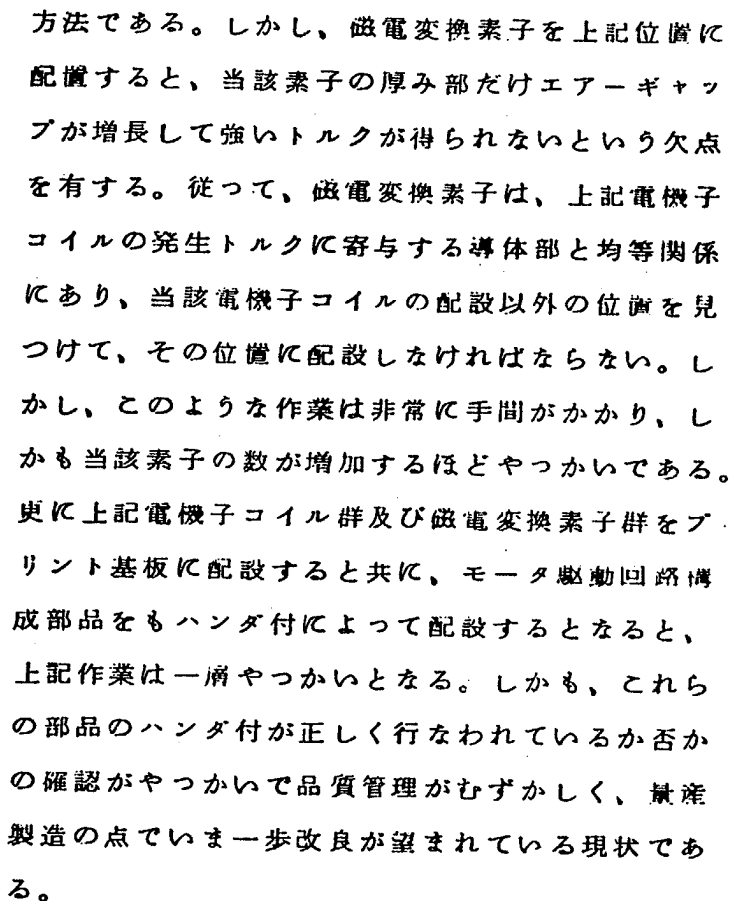 方法である。しかし、磁電変換素子を上記位置に
配置すると、当該素子の厚み部だけエアーギャッ
プが増長して強いトルクが得られないという欠点
を有する。従つて、磁電変換素子は、上記電機子
コイルの発生トルクに寄与する導体部と均等関係
にあり、当該電機子コイルの配設以外の位置を見
つけて、その位置に配設しなければならない。し
かし、このような作業は非常に手間がかかり、し
かも当該素子の数が増加するほどやつかいである。
更に上記電機子コイル群及び磁電変換素子群をプ
リント基板に配設すると共に、モータ駆動回路構
成部品をもハンダ付によつて配設するとなると、
上記作業は一層やつかいとなる。しかも、これら
の部品のハンダ付が正しく行なわれているか否か
の確認がやつかいで品質管理がむずかしく、量産
製造の点でいま一歩改良が望まれている現状であ
る。